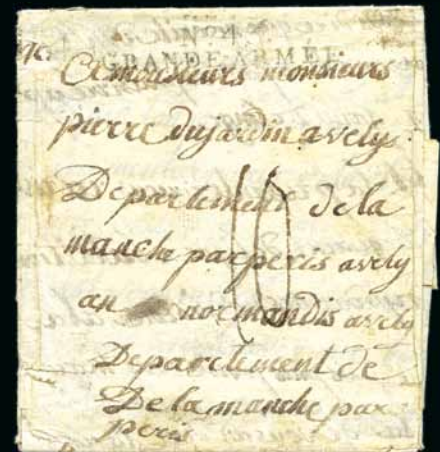 GRANDE ARMEE
A mousieurs monsieurs
pierre dujardin avely
Departement de la
manche par peris avely
an normandis avely
Departlement de
De la manche par
peris
10